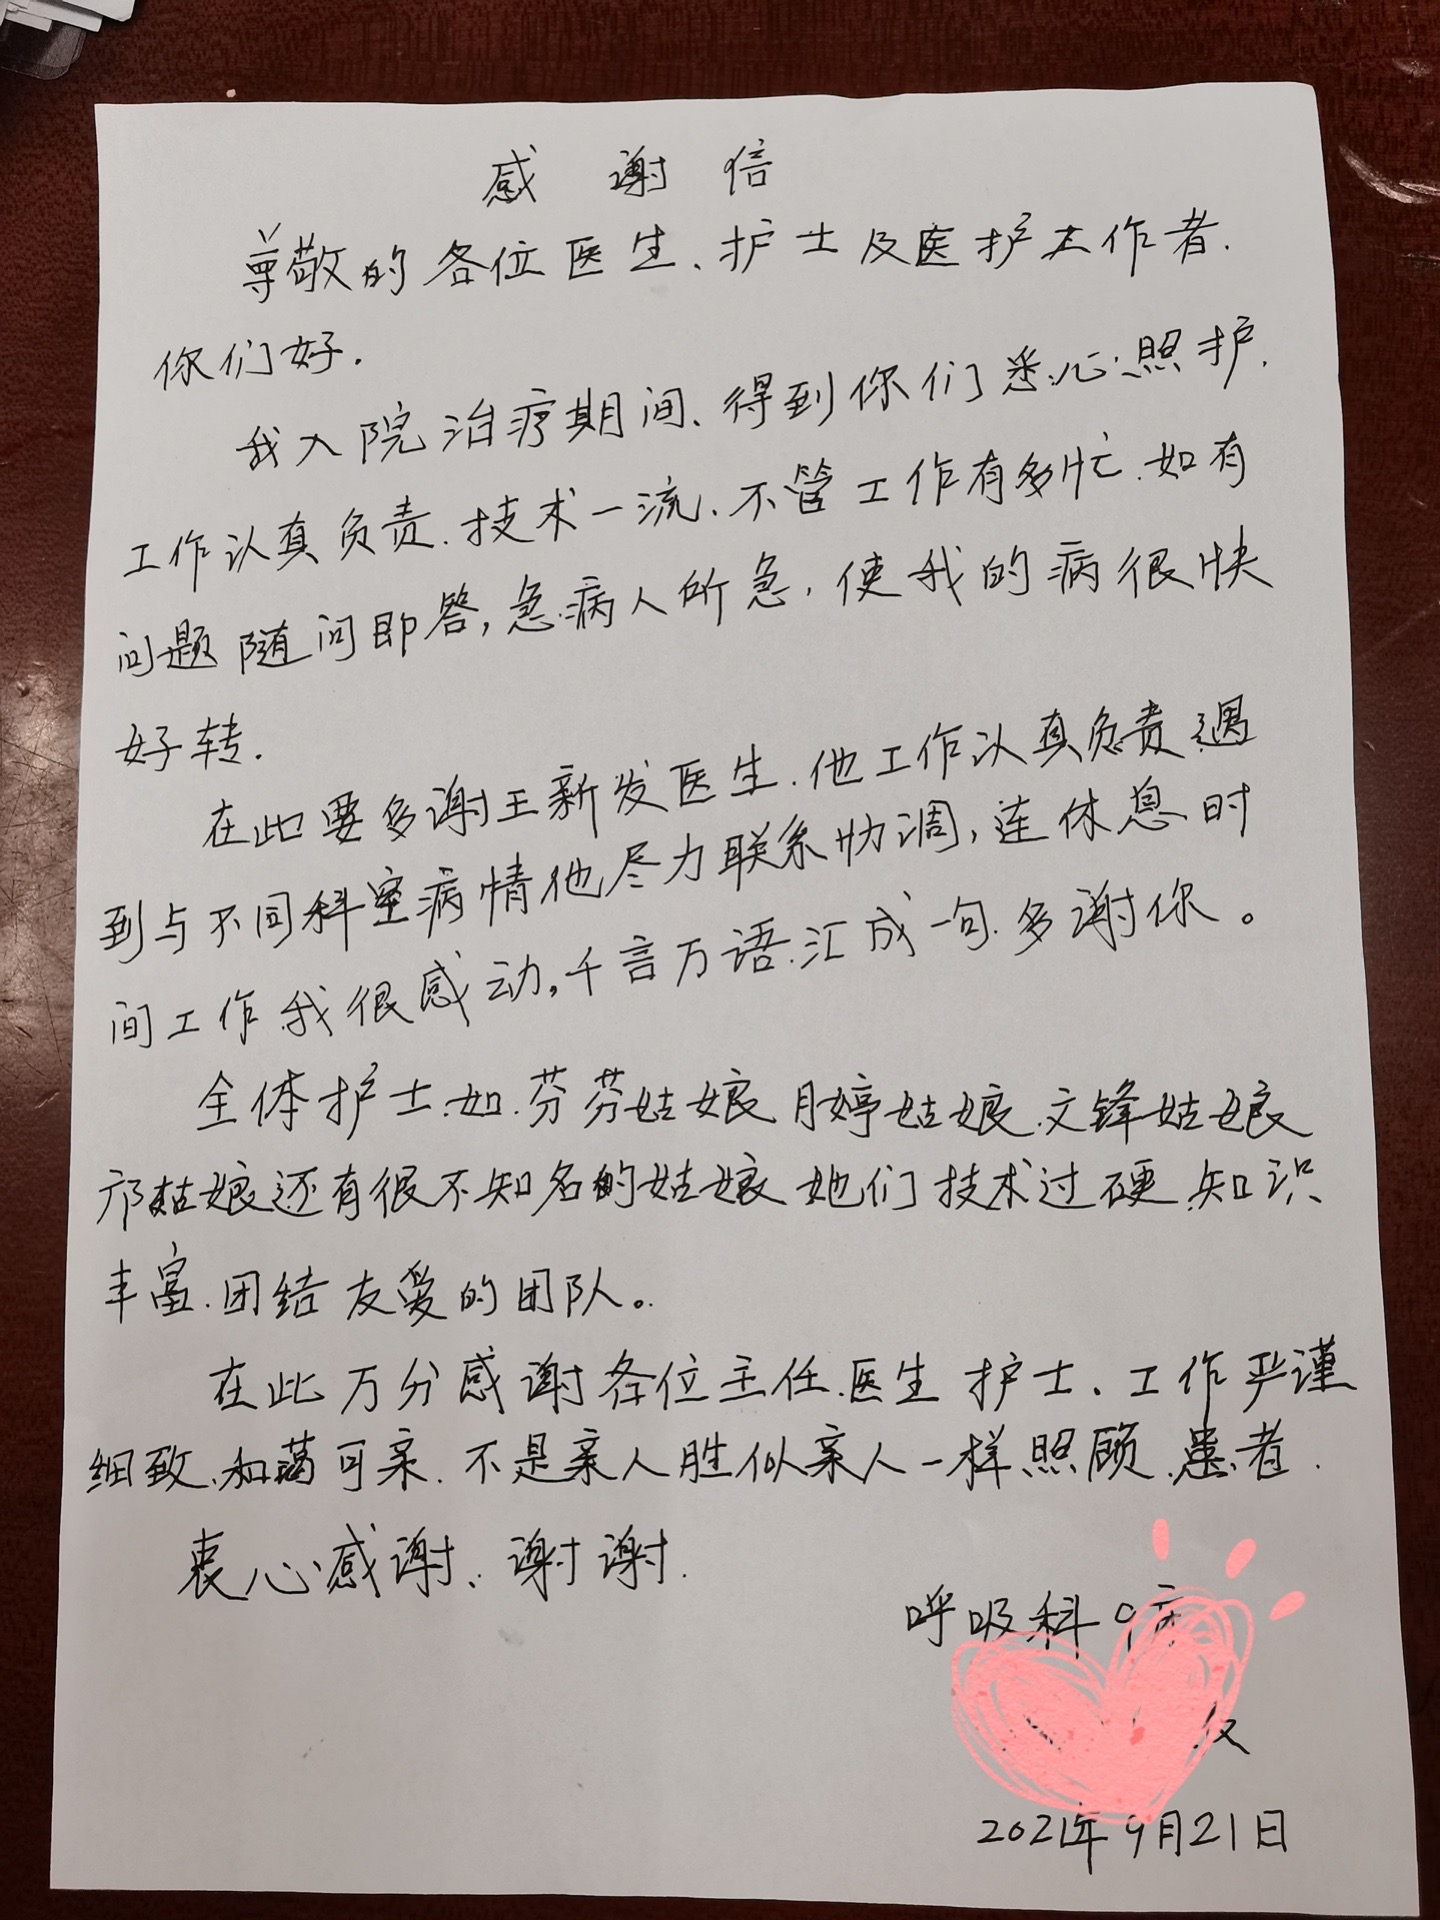 感谢信
尊敬的各位医生、护士及医护工作者.
你们好.
我入院治疗期间、得到你们悉心照护.
工作认真负责.技术一流、不管工作有多忙.如有
问题随问即答,急病人所急,使我的病很快
好转.
在此要多谢王新发医生.他工作认真负责遇
到与不同科室病情他尽力联系协调,连休息时
间工作.我很感动,千言万语.汇成一句.多谢你。
全体护士.如.芬芬姑娘月婷姑娘.文锋姑娘
邝姑娘还有很不知名的姑娘她们技术过硬.知识
丰富.团结友爱的团队。
在此万分感谢各位主任.医生护士、工作严谨
细致.和蔼可亲.不是亲人胜似亲人一样照顾患者.
衷心感谢、谢谢.
呼吸科9
2021年9月21日